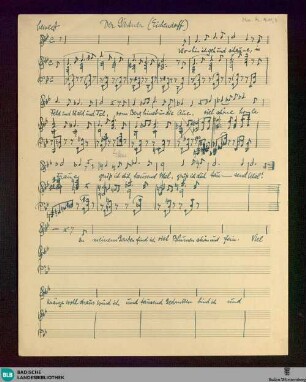 bewegt Der Gärtner (Eichendorff)
Wohin ich geh und schaue, in
Feld und Wald und Tal, vom Berg hinab in die Aue,
grüß ich dich tausend Mal, grüß ich dich tausend Mal.
In meinem Garten find ich viel Blumen schön und fein. Viel
Kränze wohl draus wind ich und tausend Gedanken bind ich und
BLB BADISCHE
LANDESBIBLIOTHEK